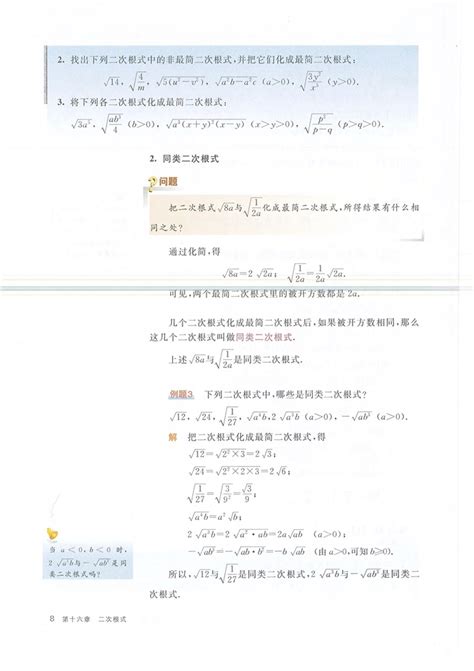 2. 找出下列二次根式中的非最简二次根式,并把它们化成最简二次根式:
√14, √(4/m), √(5(u²−v²)), √(a³b−a²c) (a>0), √(3y²/x³) (y>0).
3. 将下列各二次根式化成最简二次根式:
(b>0), √(a³(x+y)²(x−y)) (x>y>0), √(p³/(p−q)) (p>q>0).
2. 同类二次根式
问题
把二次根式√(8a)与√(1/(2a))化成最简二次根式,所得结果有什么相
同之处?
通过化简,得
√(8a)=2√(2a); √(1/(2a))=(1/(2a))√(2a).
可见,两个最简二次根式里的被开方数都是2a.
几个二次根式化成最简二次根式后,如果被开方数相同,那么
这几个二次根式叫做同类二次根式.
上述√(8a)与√(1/(2a))是同类二次根式.
例题3 下列二次根式中,哪些是同类二次根式?
√12, √24, √(1/27), √(a⁴b), 2√(a³b) (a>0), −√(ab³) (a>0).
解 把二次根式化成最简二次根式,得
√12=√(2²×3)=2√3;
√24=√(2²×2×3)=2√6;
√(1/27)=√(3/9²)=√3/9;
√(a⁴b)=a²√b;
2√(a³b)=2√(a²·ab)=2a√(ab) (a>0);
−√(ab³)=−√(ab·b²)=−b√(ab) (由a>0,可知b≥0).
当a<0,b<0时,
2√(a³b)与−√(ab³)是同
类二次根式吗?
所以,√12与√(1/27)是同类二次根式;2√(a³b)与−√(ab³)是同类二
次根式.
8 第十六章 二次根式